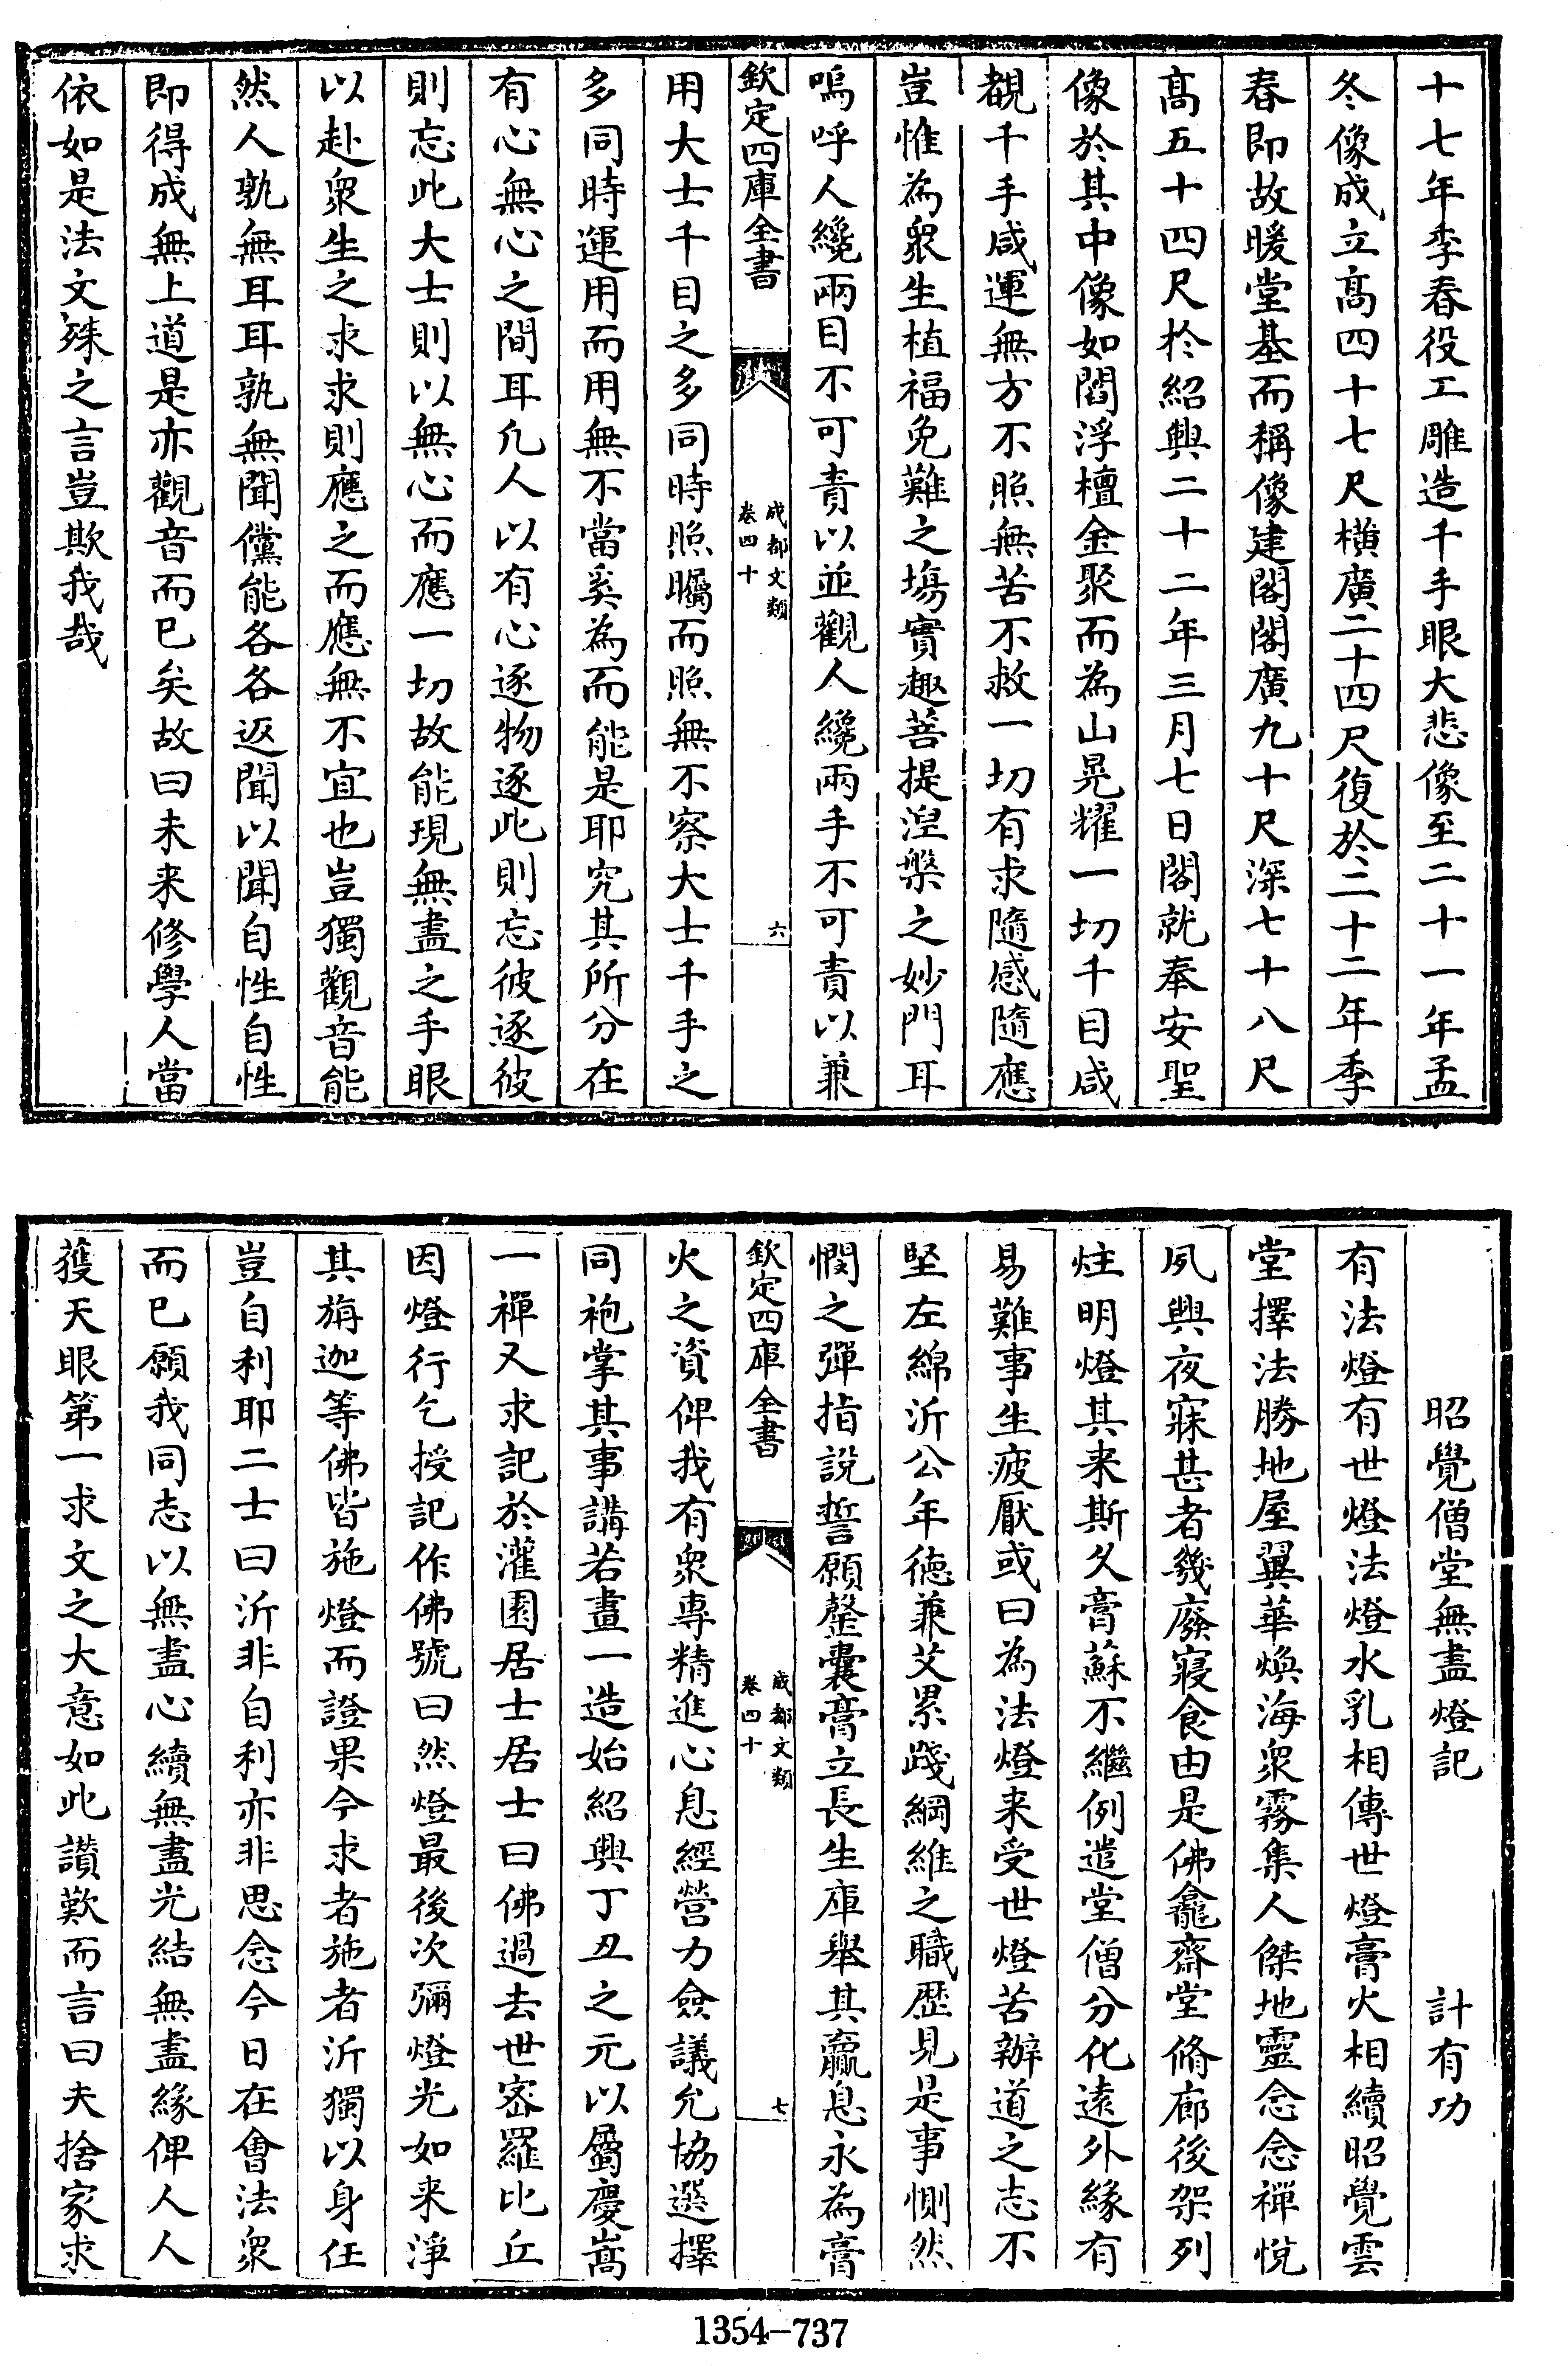 十七年季春役工雕造千手眼大悲像至二十一年孟
冬像成立髙四十七尺横廣二十四尺復於二十二年季
春即故暖堂基而稱像建閣閣廣九十尺深七十八尺
髙五十四尺於紹興二十二年三月七日閣就奉安聖
像於其中像如閻浮檀金聚而為山晃耀一切千目咸
覩千手咸運無方不照無苦不救一切有求隨感隨應
豈惟為衆生植福免難之塲實趣菩提湼槃之妙門耳
嗚呼人纔兩目不可責以並觀人纔兩手不可責以兼
欽定四庫全書
成都文類
卷四十
六
用大士千目之多同時照矚而照無不察大士千手之
多同時運用而用無不當奚為而能是耶究其所分在
有心無心之間耳凡人以有心逐物逐此則忘彼逐彼
則忘此大士則以無心而應一切故能現無盡之手眼
以赴衆生之求求則應之而應無不宜也豈獨觀音能
然人孰無耳耳孰無聞儻能各各返聞以聞自性自性
即得成無上道是亦觀音而已矣故曰未来修學人當
依如是法文殊之言豈欺我哉
昭覺僧堂無盡燈記 計有功
有法燈有世燈法燈水乳相傳世燈膏火相續昭覺雲
堂擇法勝地屋翼華煥海衆霧集人傑地靈念念禪悅
夙興夜寐甚者幾廢寢食由是佛龕齋堂脩廊後架列
炷明燈其来斯久膏蘇不繼例遣堂僧分化逺外緣有
易難事生疲厭或曰為法燈来受世燈苦辦道之志不
堅左綿沂公年徳兼艾累踐綱維之職歴見是事惻然
憫之彈指說誓願罄囊膏立長生庫舉其贏息永為膏
火之資俾我有衆專精進心息經營力僉議允協選擇
同袍掌其事講若畫一造始紹興丁丑之元以屬慶嵩
一禪又求記於灌園居士居士曰佛過去世宻羅比丘
因燈行乞授記作佛號曰然燈最後次彌燈光如来淨
其旃迦等佛皆施燈而證果今求者施者沂獨以身任
豈自利耶二士曰沂非自利亦非思念今日在會法衆
而已願我同志以無盡心續無盡光結無盡緣俾人人
獲天眼第一求文之大意如此讃歎而言曰夫捨家求
1354-737